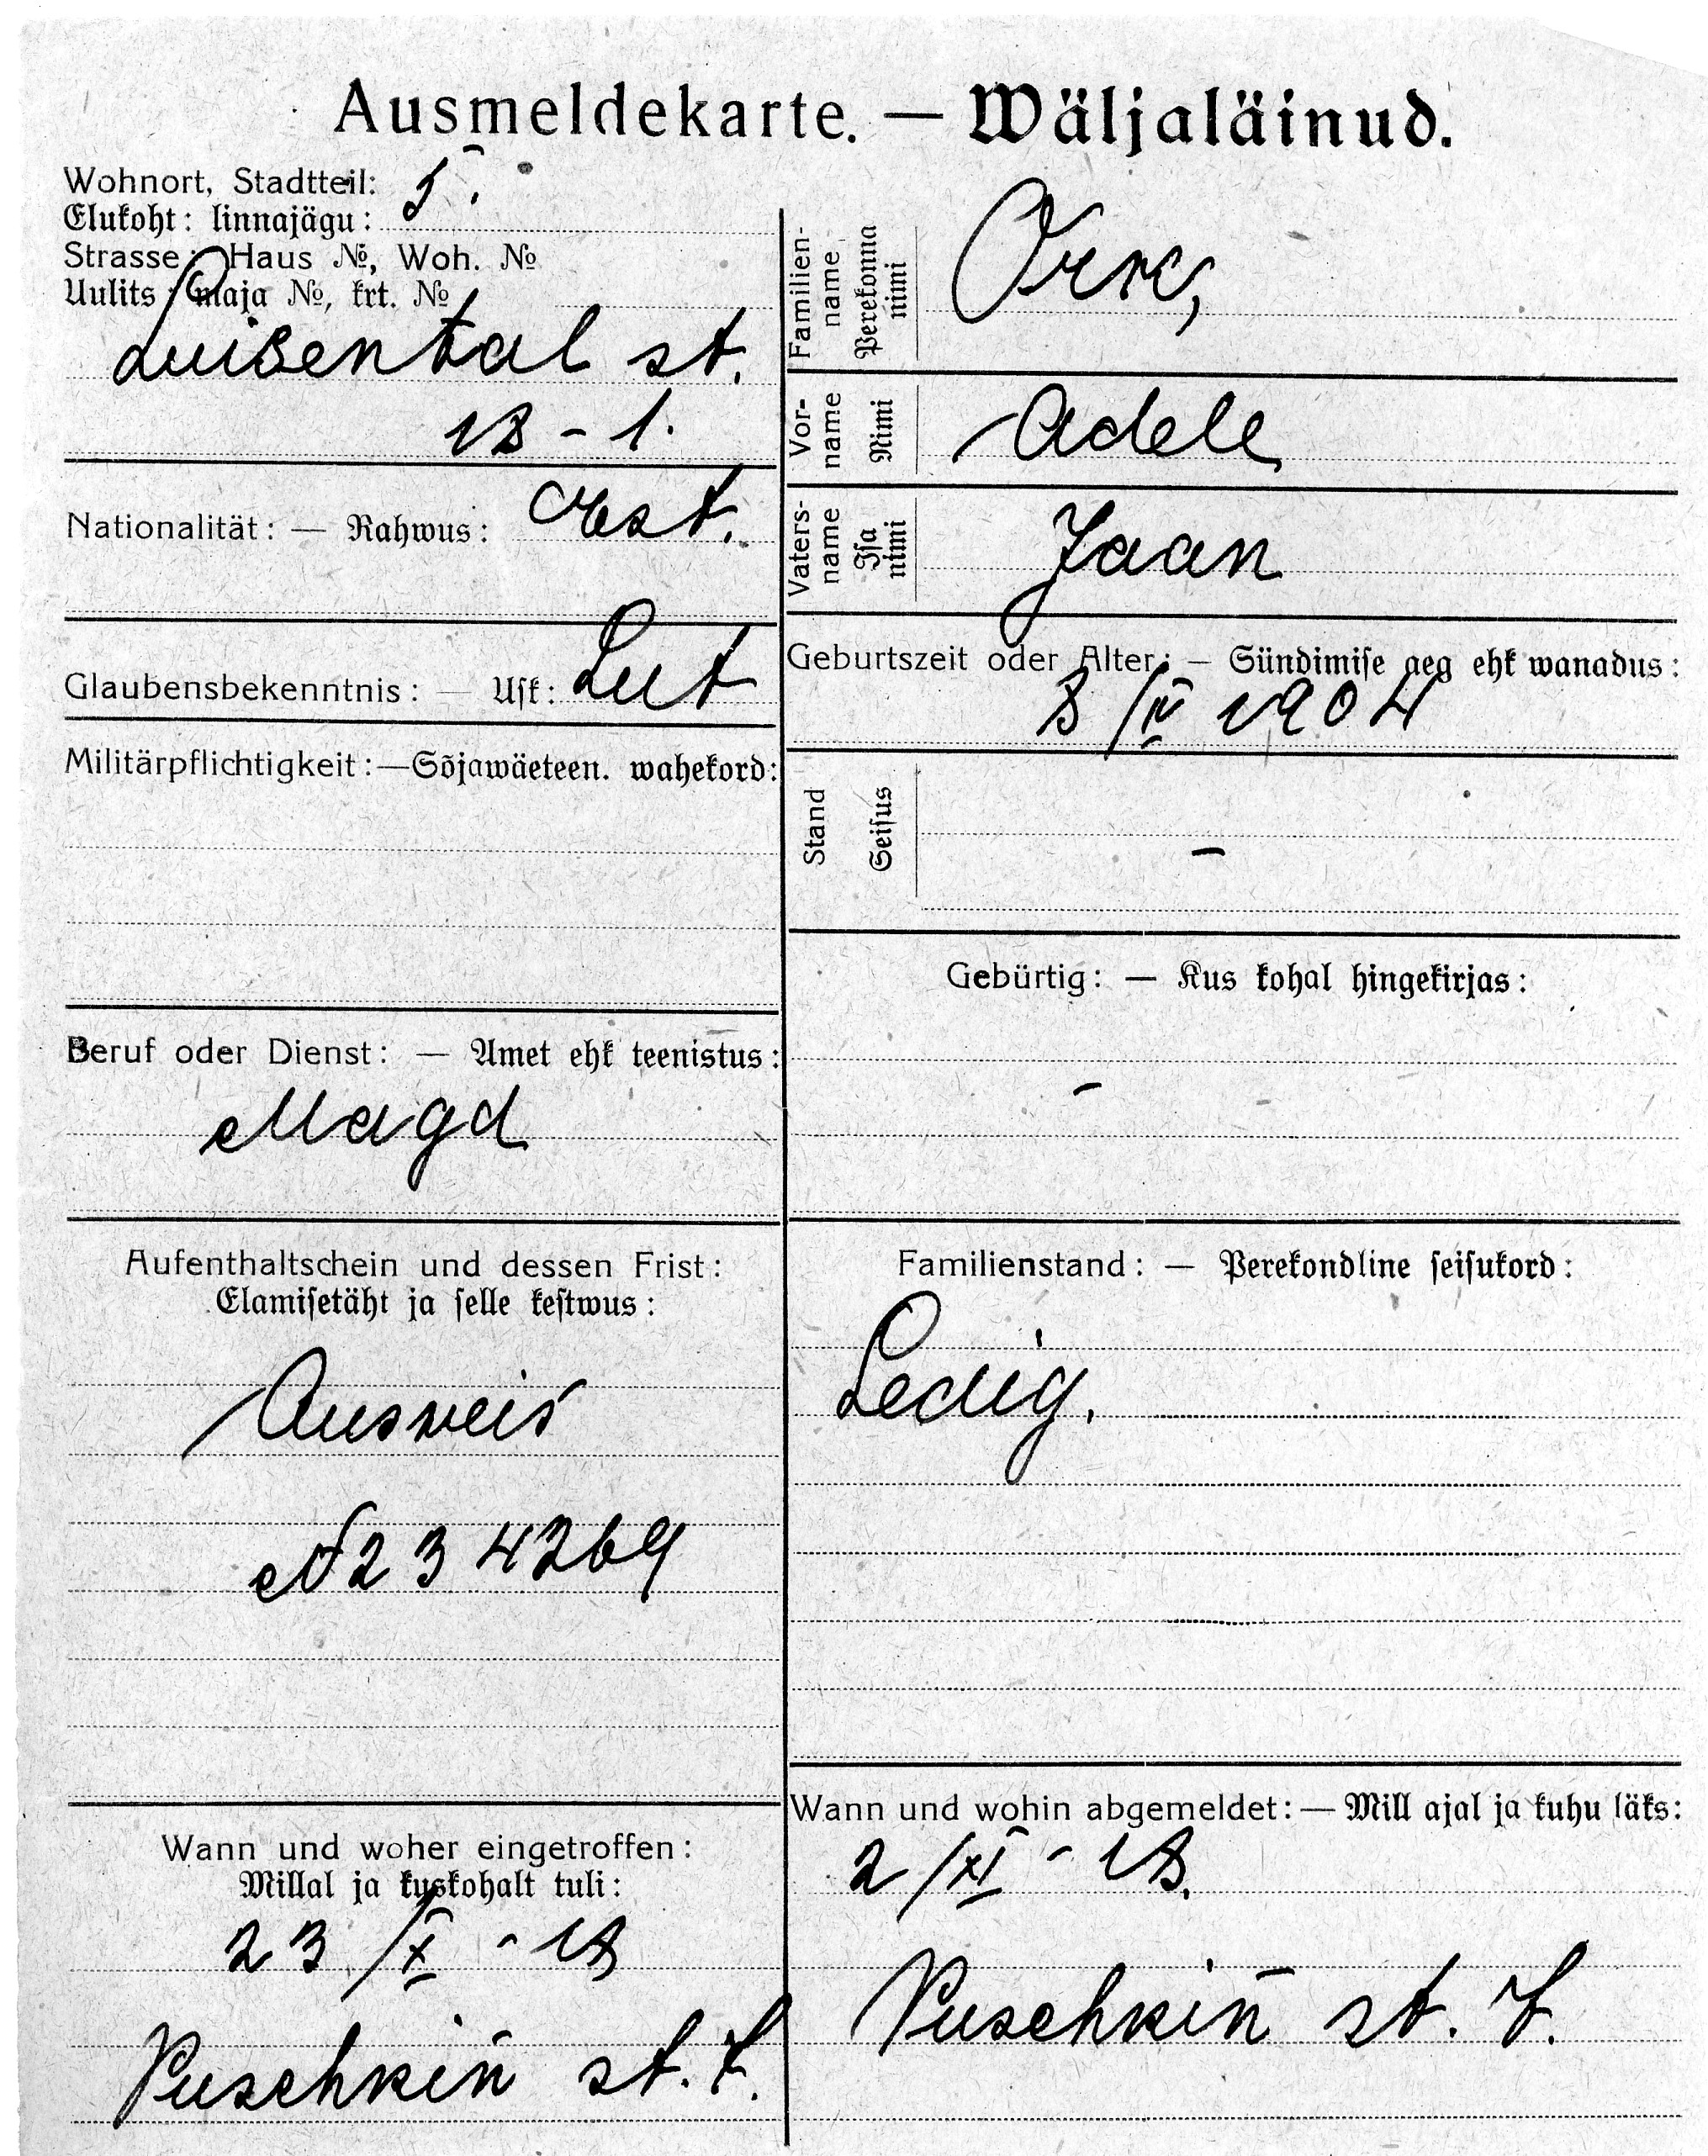 Ausmeldekarte. — Wäljaläinud.
Wohnort, Stadtteil: 5.
Elukoht: linnajägu:
Strasse: Haus №, Woh. №
Uulits: maja №, krt. №
Luisental st.
18 - 1.
Nationalität: — Rahwus: Est.
Glaubensbekenntnis: — Usk: Lut
Militärpflichtigkeit:—Sõjawäeteen. wahekord:
Beruf oder Dienst: — Amet ehk teenistus:
Magd
Aufenthaltschein und dessen Frist:
Elamisetäht ja selle kestwus:
Ausweis
N 234269
Wann und woher eingetroffen:
Millal ja kuskohalt tuli:
23/X - 18
Puschkin st. 7.
Familien-
name
Perekonna
nimi
Ork,
Vor-
name
Nimi
Adele
Vaters-
name
Isa
nimi
Jaan
Geburtszeit oder Alter: — Sündimise aeg ehk wanadus:
8/IV 1904
Stand
Seisus
-
Gebürtig: — Kus kohal hingekirjas:
-
Familienstand: — Perekondline seisukord:
Ledig.
Wann und wohin abgemeldet:— Mill ajal ja kuhu läks:
2/XI - 18.
Puschkin st. 7.